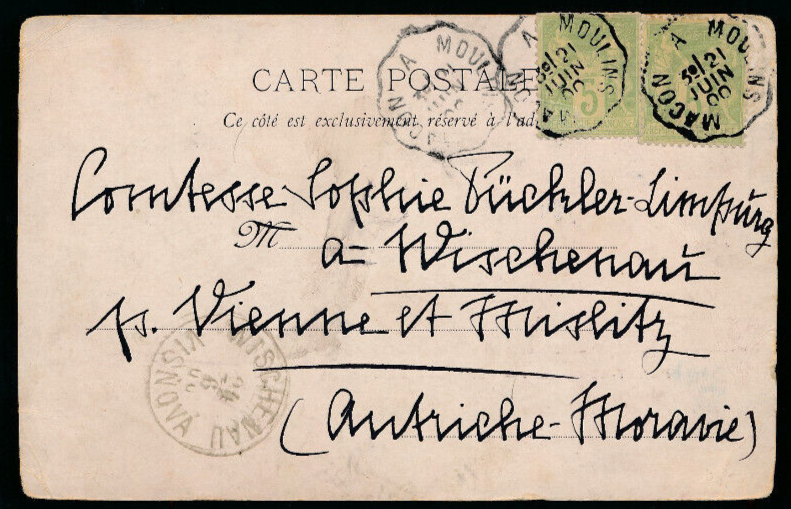 CARTE POSTALE
Ce côté est exclusivement réservé à l'ad
MACON A MOULINS
3º/21
JUIN
00
MACON A MOULINS
3º/21
JUIN
00
MACON A MOULINS
21
JUIN
00
5
Comtesse Sophie Pückler-Limpurg
M
à Wischenau
p. Vienne et Mislitz
(Autriche-Moravie)
WISCHENAU
VIŠNOVÁ